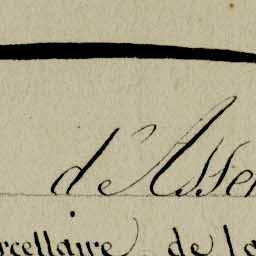 d'Assen
rcellaire de la